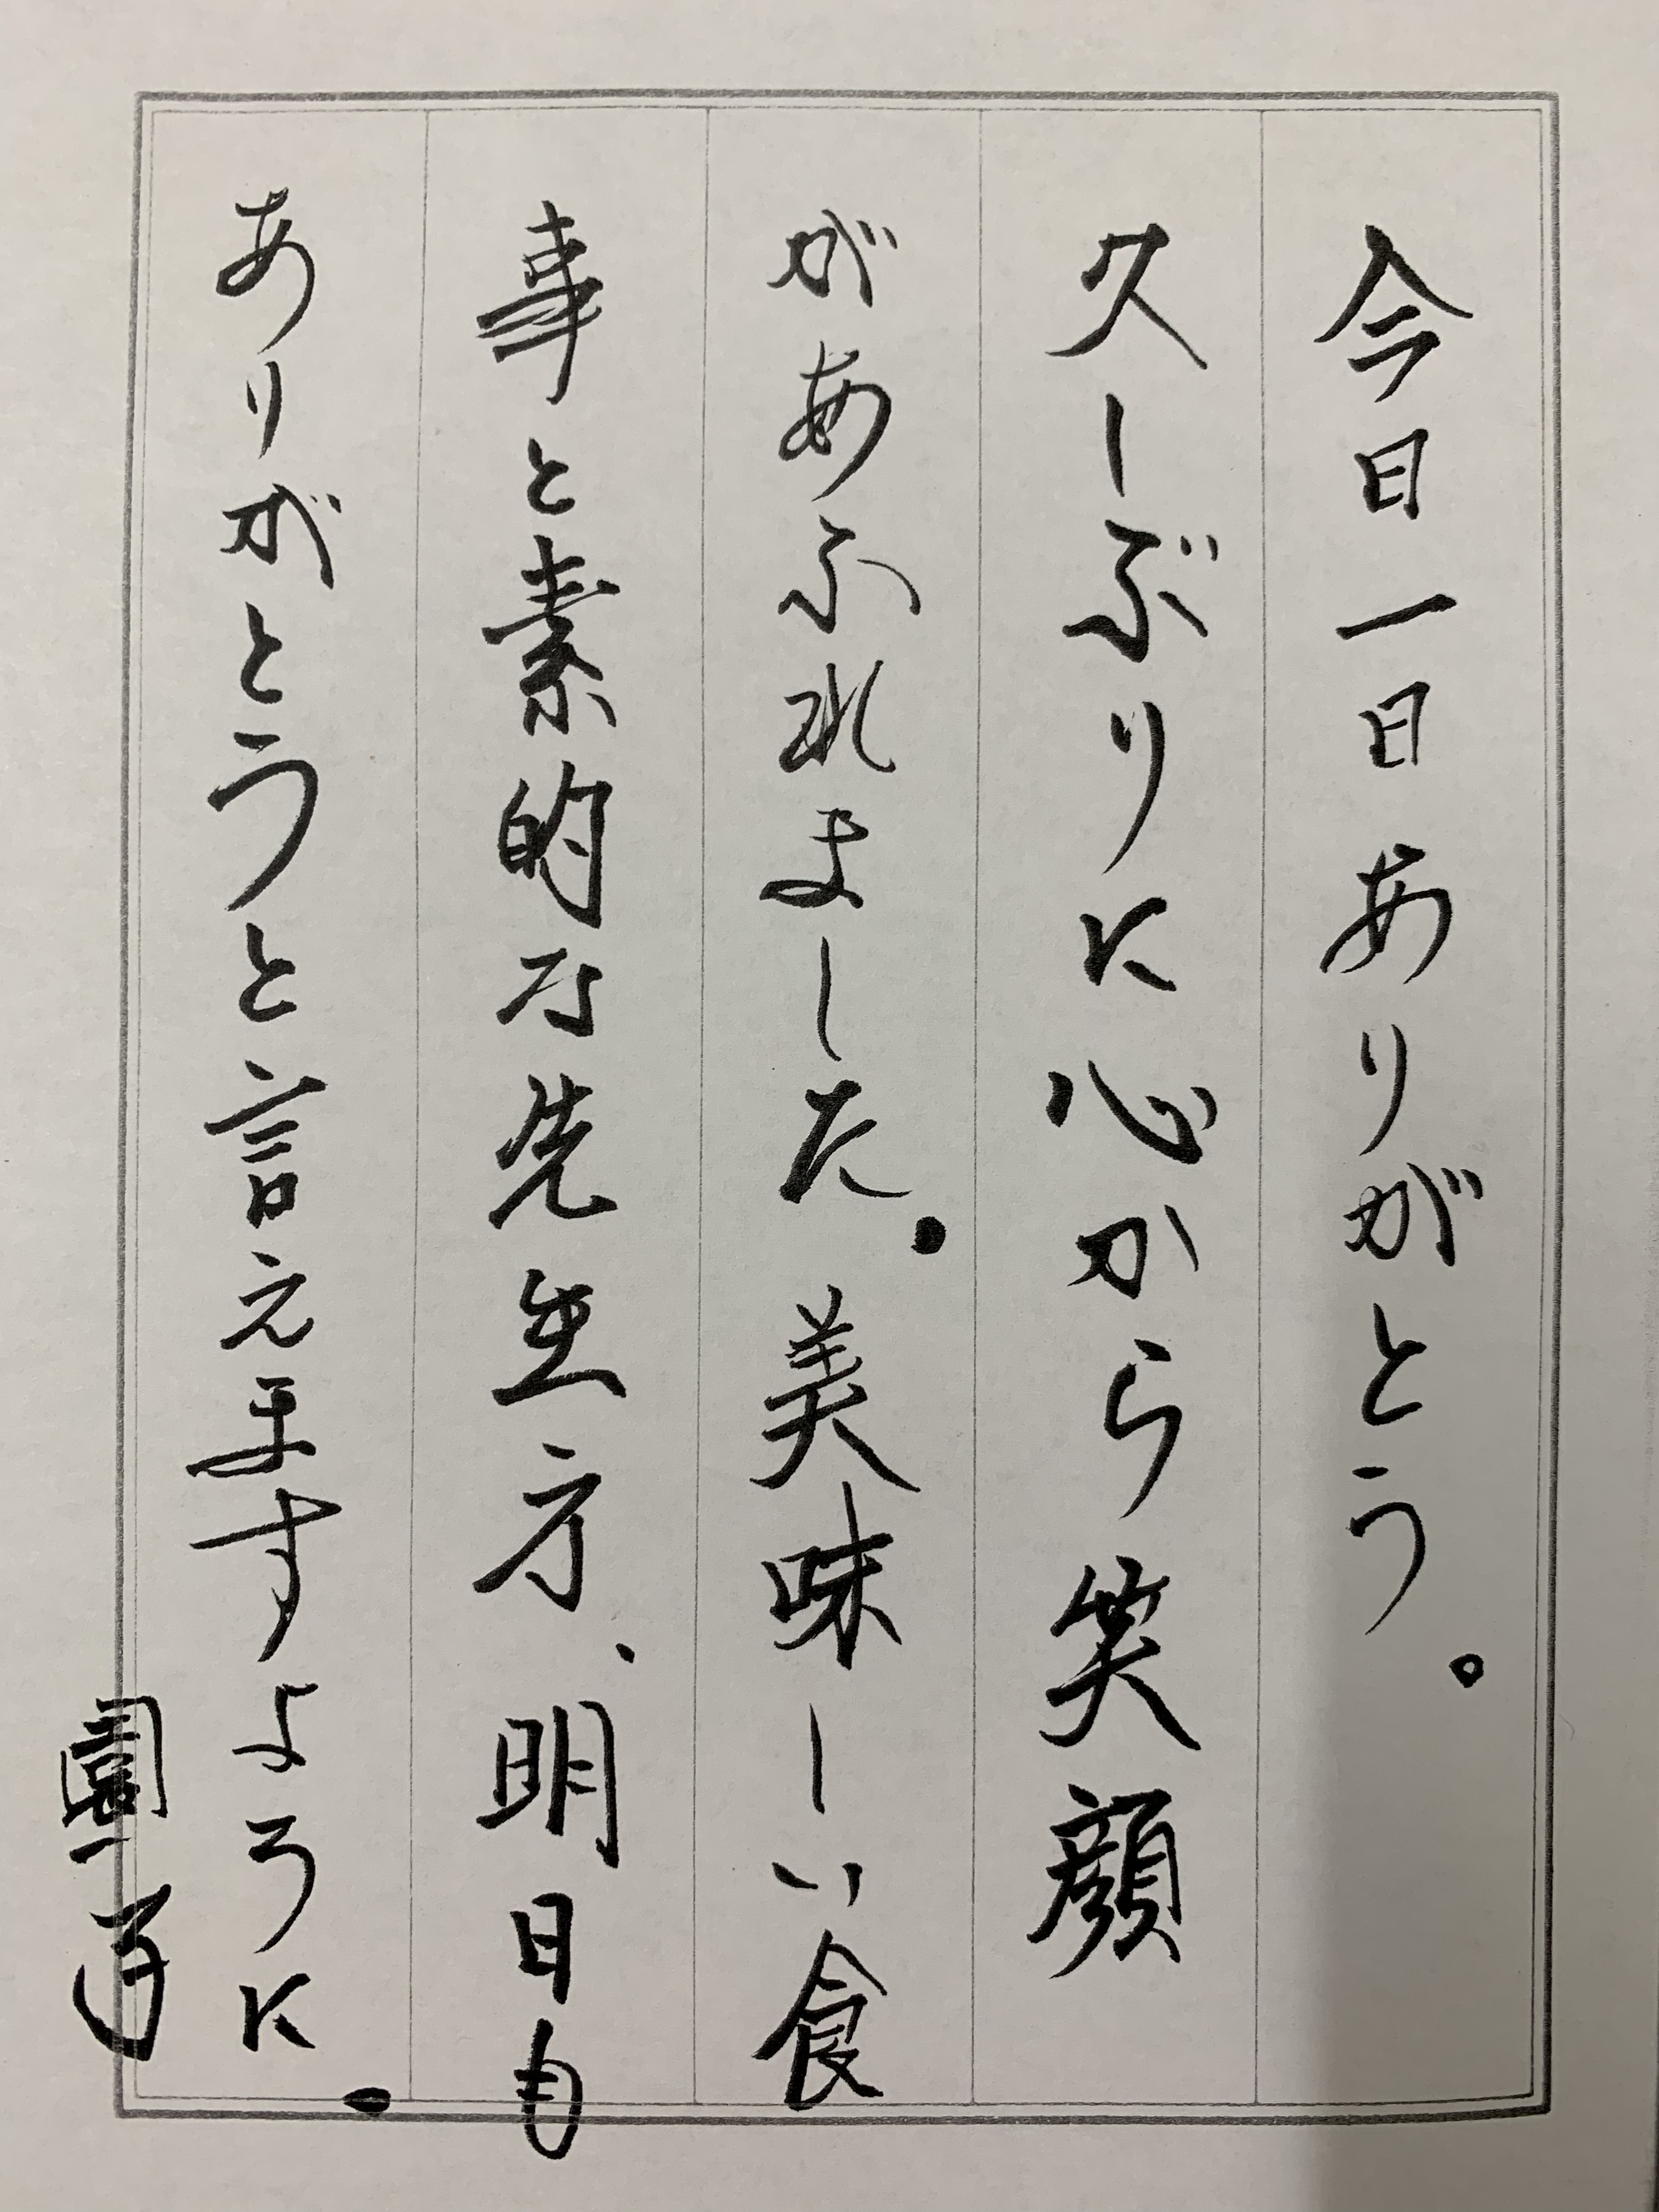 今日一日ありがとう。
久しぶりに心から笑顔
があふれました。美味しい食
事と素的な先生方、明日も
ありがとうと言えますように。